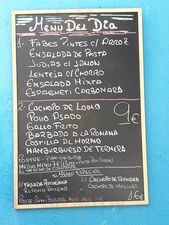 MENÚ DEL DÍA
1- FABES PINTES C/ ARROZ
ENSALADA DE PASTA
JUDIAS C/ JAMON
LENTEJA C/ CHORIZO
ENSALADA MIXTA
ESPAGUETI CARBONARA
2- CACHOPO DE LOMO
POLLO ASADO
GALLO FRITO
BARBADA A LA ROMANA
COSTILLA AL HORNO
HAMBURGUESO DE TERNERA
9€
POSTRE
MENU ESPECIAL
1/ FABADA ASTURIANA
2/ CACHOPO DE TERNERA
16€